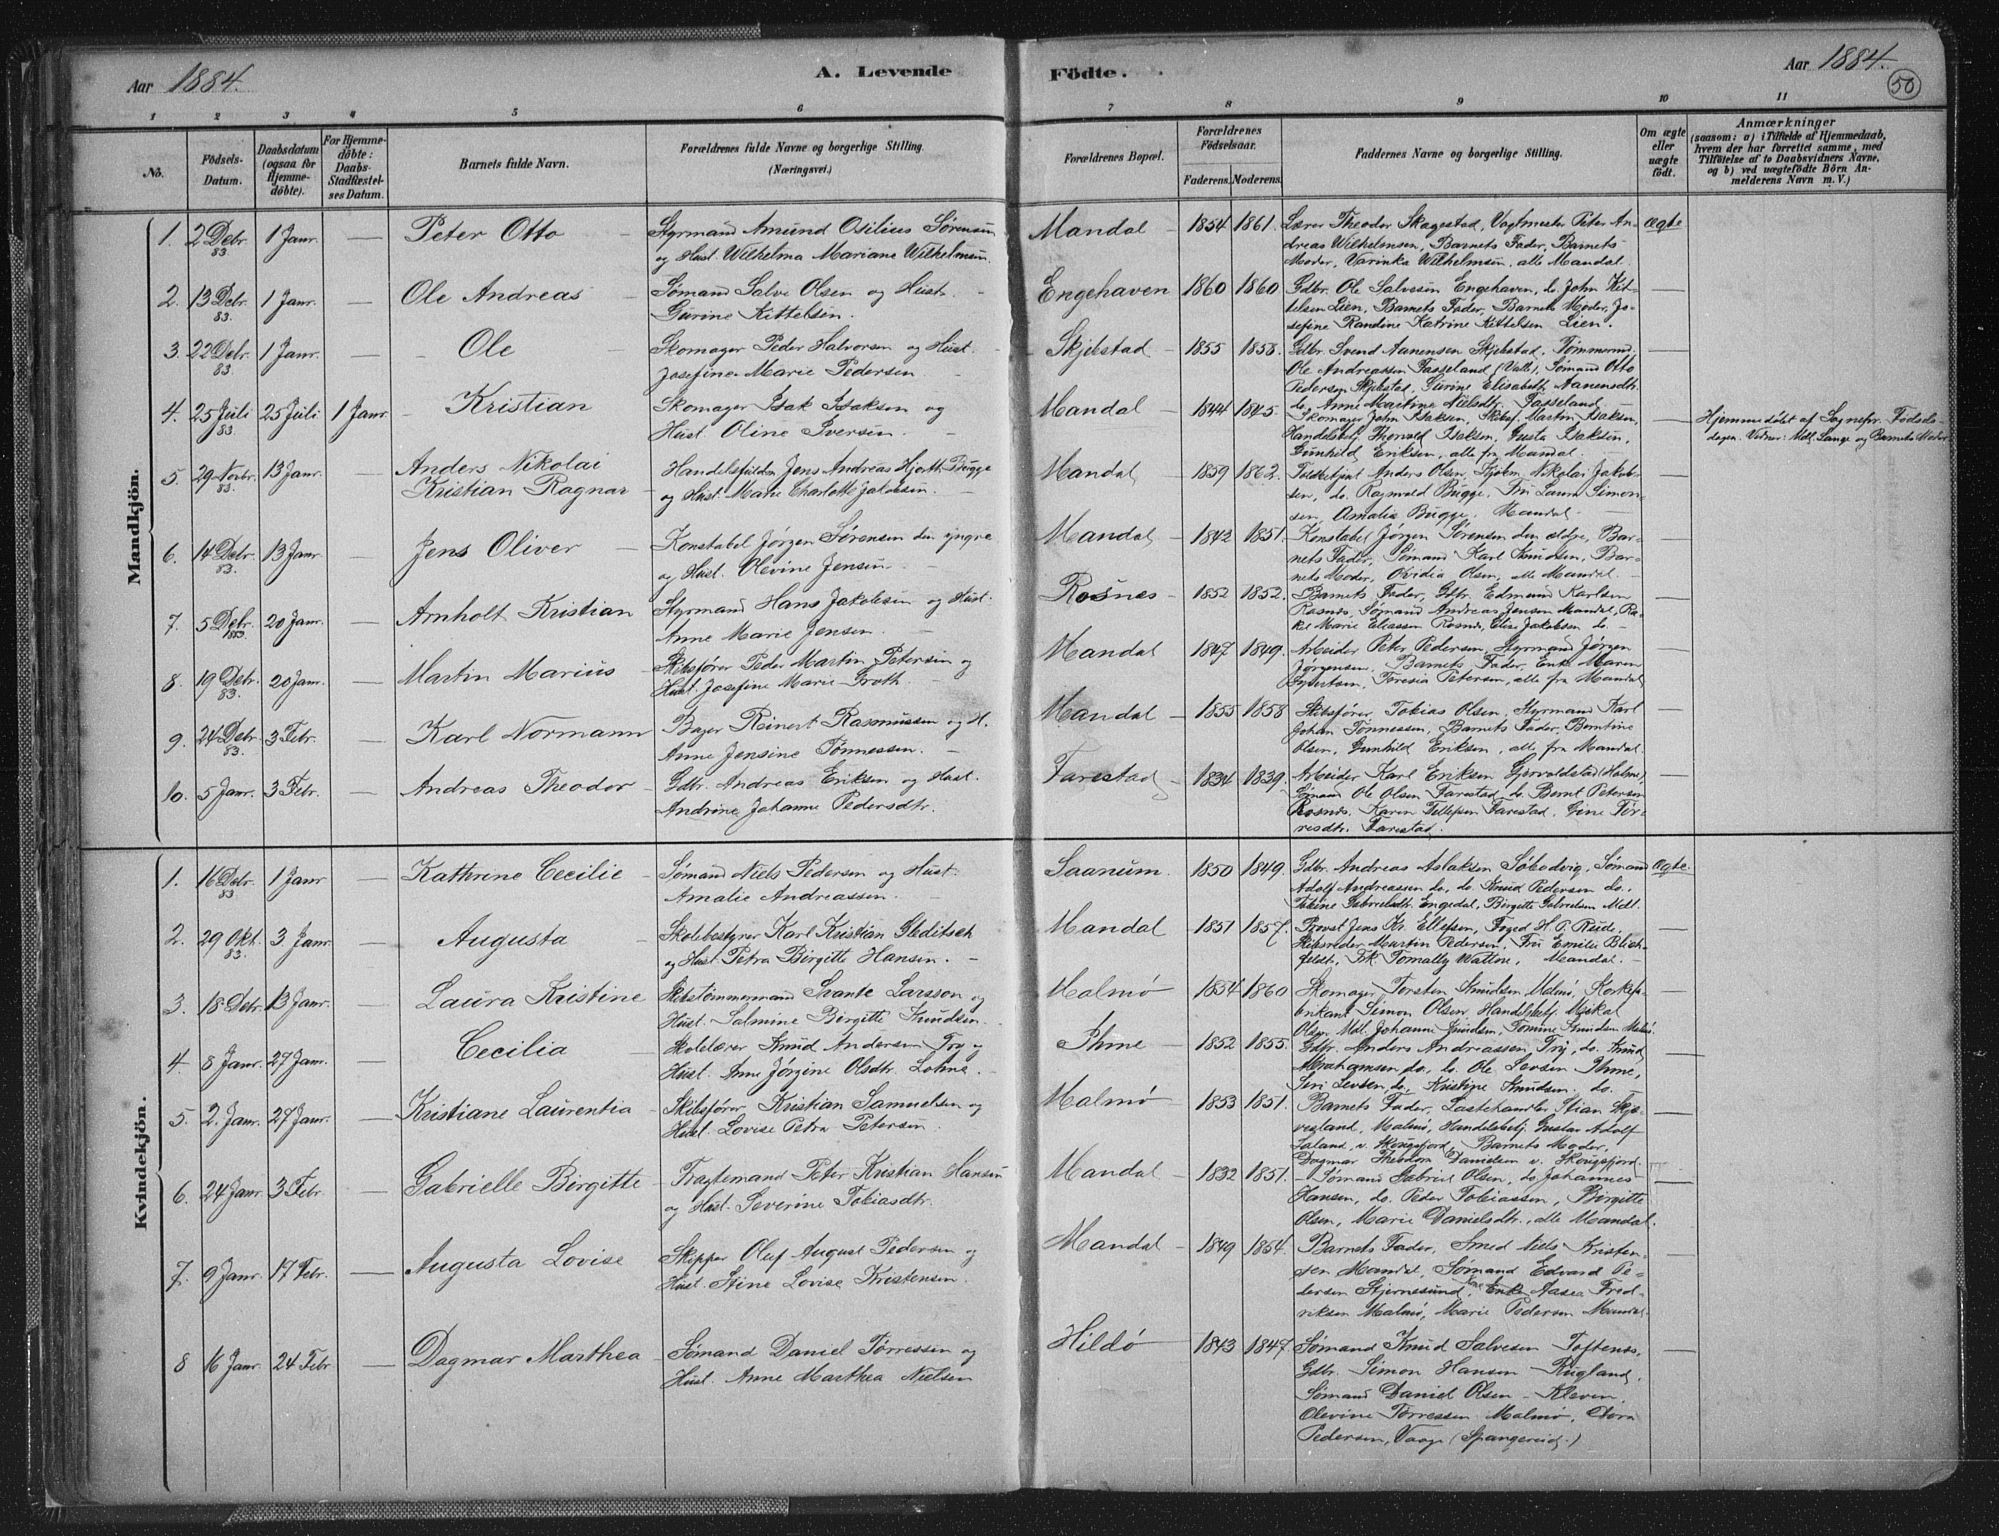 Aar 1884.
A. Levende
Födte.
Aar 1884.
50
1 2 3 4 5 6 7 8 9 10 11
No.
Födsels-
Datum.
Daabsdatum
(ogsaa for
Hjemme-
döbte).
For Hjemme-
döbte:
Daabs-
Stadfæstel-
ses Datum.
Barnets fulde Navn.
Forældrenes fulde Navne og borgerlige Stilling.
(Næringsvei.)
Forældrenes Bopæl.
Forældrenes
Födselsaar.
Faderens. Moderens.
Faddernes Navne og borgerlige Stilling.
Om ægte
eller
uægte
født.
Anmærkninger
(saasom: a) i Tilfælde af Hjemmedaab,
hvem der har forrettet samme, med
Tilföielse af to Daabsvidners Navne,
og b) ved uægtefödte Börn An-
melderens Navn m. V.)
Mandkjön.
1. 2 Debr. 83. 1 Janr. — Peter Otto — Styrmand Amund Osilius Sørensen
og Hust. Wilhelma Mariane Wilhelmsen.
Mandal — 1854 1861. Lærer Theodor Skagestad, Vagtmester Peter An-
dreas Wilhelmsen, Barnets Fader, Barnets
Moder, Varinka Wilhelmsen, alle Mandal. Ægte
2. 13 Debr. 83. 1 Janr. — Ole Andreas — Sømand Salve Olsen og Hustr.
Gurine Kittelsen. —
Engehaven 1860 1860 Gdbr. Ole Salvesen Engehaven, do. John Kit-
telsen Lien, Barnets Fader, Barnets Moder, Jo-
sefine Randine Katrine Kittelsen Lien. —
3. 22 Debr. 83 1 Janr. — Ole — Skomager Peder Halvorsen og Hust.
Josefine Marie Pedersen —
Skjebstad — 1855 1858. Gdbr. Svend Aanensen Skjebstad, Tømmermd.
Ole Andreassen Tasseland (Valle), Sømand Otto
Pedersen Skjebstad, Gurine Elisabeth Aanensdtr.
do. Anne Martine Nielsdtr. Tasseland. —
4. 25 Juli 83. 25 Juli 1 Janr. Kristian — Skomager Isak Isaksen og
Hust. Oline Iversen. —
Mandal — 1844 1845. Skomager John Isaksen, Skibsf. Martin Isaksen,
Handelsbetj. Thorvald Isaksen, Gusta Isaksen,
Gunhild Eriksen, alle fra Mandal. —
Hjemmedøbt af Sognepr. Føds.ds-
dagen. Vidner: Mdl. Lange og Barnets Moder.
5. 29 Novbr. 83 13 Janr. — Anders Nikolai
Kristian Ragnar — Handelsfuldm. Jens Andreas Hjorth Bugge
og Hust. Marie Charlotte Jakobsen. —
Mandal — 1859 1862. Toldbetjent Anders Olsen, Kjøbm. Nikolai Jakob-
sen, do. Ragnvald Bugge, Fru Laura Simon-
sen, Amalia Bugge, Mandal. —
6. 14 Debr. 83. 13 Janr. — Jens Oliver — Konstabel Jørgen Sørensen den yngre
og Hust. Olevine Jensen. —
Mandal — 1842 1851. Konstabel Jørgen Sørensen den ældre, Bar-
nets Fader, Sømand Karl Knudsen, Bar-
nets Moder, Ovidia Olsen, alle Mandal. —
7. 5 Debr. 1883. 20 Janr. — Arnholt Kristian Styrmand Hans Jakobsen og Hust.
Anne Marie Jensen. —
Rosnes — 1852 1852. Barnets Fader, Gdbr. Edmund Karlsen
Rosnes, Sømand Andreas Jensen Mandal, Ra-
kel Marie Eliassen Rosnes, Elise Jakobsen do. —
8. 19 Debr. 83. 20 Janr. — Martin Marius — Skibsfører Peder Martin Petersen og
Hust. Josefine Marie Groth. —
Mandal — 1847 1849. Arbeider Peter Pedersen, Styrmand Jørgen
Jørgensen, Barnets Fader, Enke Maren
Sybertsen, Teresia Petersen, alle fra Mandal
9. 24 Debr. 83. 3 Febr. — Karl Normann — Bager Reinert Rasmussen og H.
Anne Jensine Tønnessen. —
Mandal — 1855 1858 Skibsfører Tobias Olsen, Styrmand Karl
Johan Tønnessen, Barnets Fader, Berntine
Olsen, Gunhild Eriksen, alle fra Mandal.
10. 5 Janr. 3 Febr. — Andreas Theodor — Gdbr. Andreas Eriksen og Hust.
Andrine Johanne Pedersdtr.
Farestad — 1834 1839. Arbeider Karl Eriksen Gjervoldstad (Holme),
Sømand Ole Olsen Farestad, do. Bernt Petersen
Rosnes, Karen Tellefsen Farestad, Gine Tør-
resdtr. Farestad.
Kvindekjön.
1. 16 Debr. 83 1 Janr — Kathrine Cecilie — Sømand Niels Pedersen og Hust.
Amalie Andreassen. —
Saanum. 1850 1849. Gdbr. Andreas Aslaksen Søbodvig, Sømand
Adolf Andreassen do., do. Knud Pedersen do.
Tobine Gabrielsdtr. Engedal, Birgitte Gabrielsen Mdl. Ægte.
2. 29 Okt. 83 3 Janr. — Augusta — Skolebestyrer Karl Kristian Gleditsch
og Hust. Petra Birgitte Hansen. —
Mandal — 1851 1857. Provst Jens Kr. Ellefsen, Foged H. P. Reide,
Skibsreder Martin Pedersen, Fru Emilie Blich-
feldt, Frk. Tomally Wattne, Mandal. —
3. 18 Debr. 13 Janr. — Laura Kristine — Skibstømmermand Svante Larsson og
Hust. Salmine Birgitte Knudsen. —
Malmø — 1834 1860 Skomager Torsten Knudsen Malmø, Korkefa-
brikant Simon Olsen, Handelsbetj. Mikal
Olsen Mdl. Johanne Knudsen, Tomine Knudsen Malmø.
4 8 Janr. 27 Janr. — Cecilia — Skolelærer Knud Andersen Try og
Hust. Anne Jørgine Olsdtr. Lohne. —
Ihme — 1852 1855. Gdbr. Anders Andreassen Try, do. Knud
Abrahamsen do., do. Ole Sevsen Ihme,
Siri Sevsen do., Kristine Knudsen. do. —
5 2. Janr. 27 Janr. — Kristiane Laurentia — Skibsfører Kristian Samuelsen og
Hust. Lovise Petra Petersen.
Malmø — 1853 1851. Barnets Fader, Lastehandler Stian Skjæ-
vesland, Malmø, Handelsbetj. Gustav Adolf
Saland v. Skougsfjord, Barnets Moder,
Dagmar Theodora Danielsen v. Skougsfjord.
6. 24 Janr. 3 Febr. — Gabrielle Birgitte — Fragtemand Peter Kristian Hansen
og Hust. Severine Tobiasdtr.
Mandal — 1832 1851. — Sømand Gabriel Olsen, do. Johannes
Hansen, do. Peder Tobiassen, Birgitte
Olsen, Marie Danielsdtr., alle Mandal.
7. 9 Janr. 17 Febr. — Augusta Lovise — Skipper Oluf August Pedersen og
Hust. Stine Lovise Kristensen.
Mandal — 1849 1854. Barnets Fader, Smed Niels Kristen-
sen Mandal, Sømand Edvard Pe-
dersen Stjernesund, Enke Aasea Fred-
riksen Malmø, Marie Pedersen Mandal
8 16 Janr. 24 Febr. — Dagmar Marthea — Sømand Daniel Tørressen og
Hust. Anne Marthea Nielsen
Hildø — 1843 1847. Sømand Knud Salvesen Toftenes,
Gdbr. Simon Hansen Rugland,
Sømand Daniel Olsen — Kleven,
Olevine Tørressen Malmø, Dora
Pedersen, Vaage (Spangereid.)